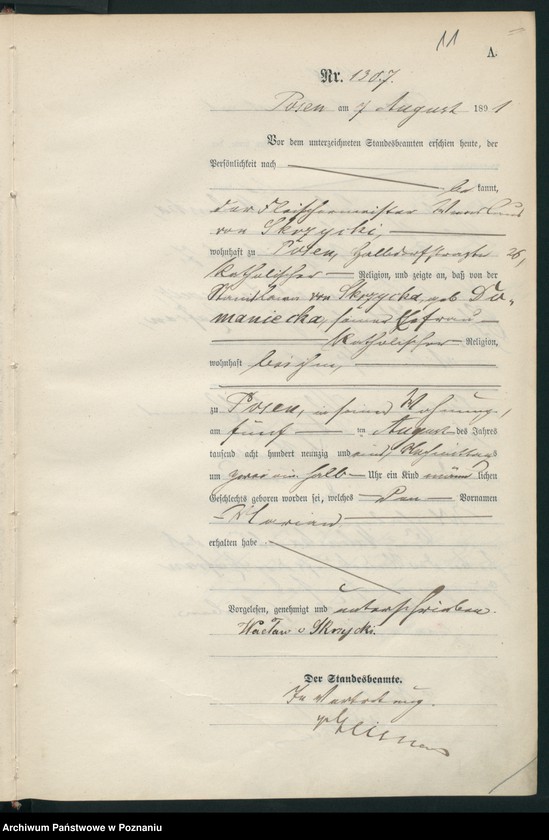 11
A.
Nr. 1307.
Posen am 7 August 1891
Vor dem unterzeichneten Standesbeamten erschien heute, der
Persönlichkeit nach
be kannt,
der Fleischermeister
von Skrzycki,
wohnhaft zu Posen, Halbdorfstraße 26,
katholischer Religion, und zeigte an, daß von der
von Skrzycka, geb. Do-
maniecka, seiner Ehefrau
katholischer Religion,
wohnhaft bei ihm,
zu Posen, in seiner Wohnung,
am fünf ten August des Jahres
tausend acht hundert neunzig und eins, Nachmittags
um zwei ein halb Uhr ein Kind männ lichen
Geschlechts geboren worden sei, welches den Vornamen
erhalten habe
Vorgelesen, genehmigt und unterschrieben.
Wacław v Skrzycki.
Der Standesbeamte.
In Vertretung.
Archiwum Państwowe w Poznaniu